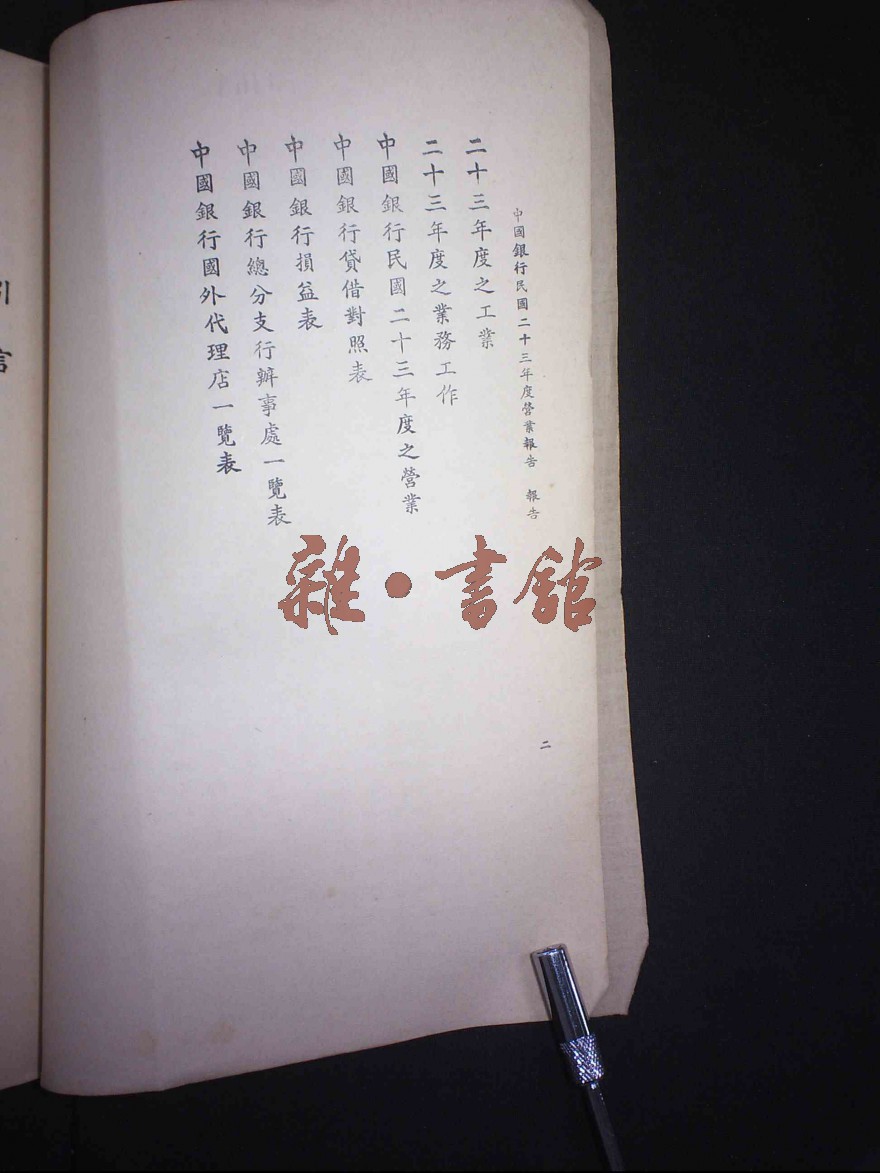 中國銀行民國二十三年度營業報告 報告
二
二十三年度之工業
二十三年度之業務工作
中國銀行民國二十三年度之營業
中國銀行貸借對照表
中國銀行損益表
中國銀行總分支行辦事處一覽表
中國銀行國外代理店一覽表
引言
雜•書館